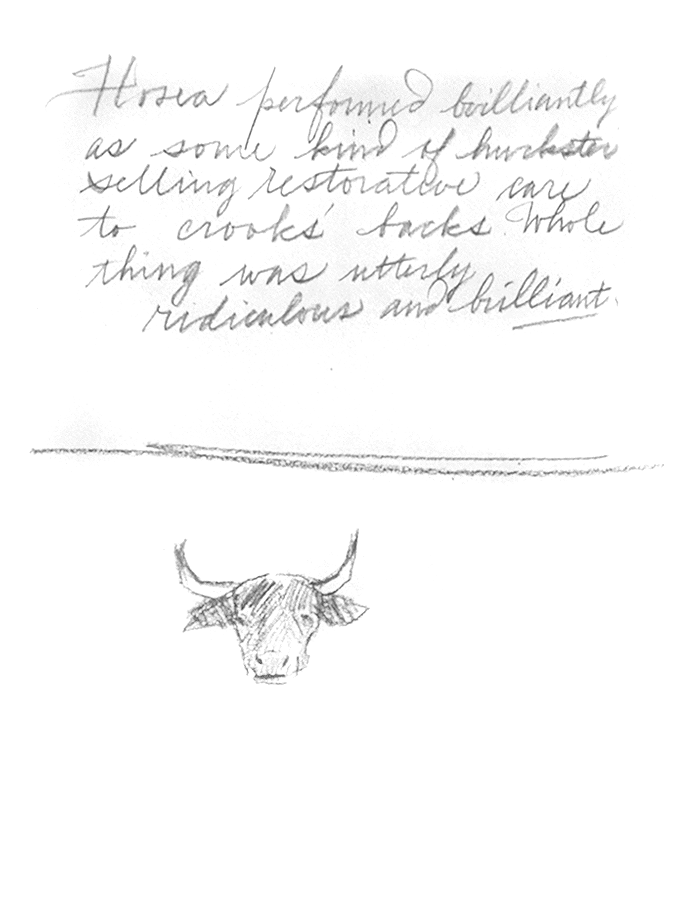 Hosea performed brilliantly
as some kind of huckster
selling restorative care
to crooks' backs. Whole
thing was utterly
ridiculous and brilliant.